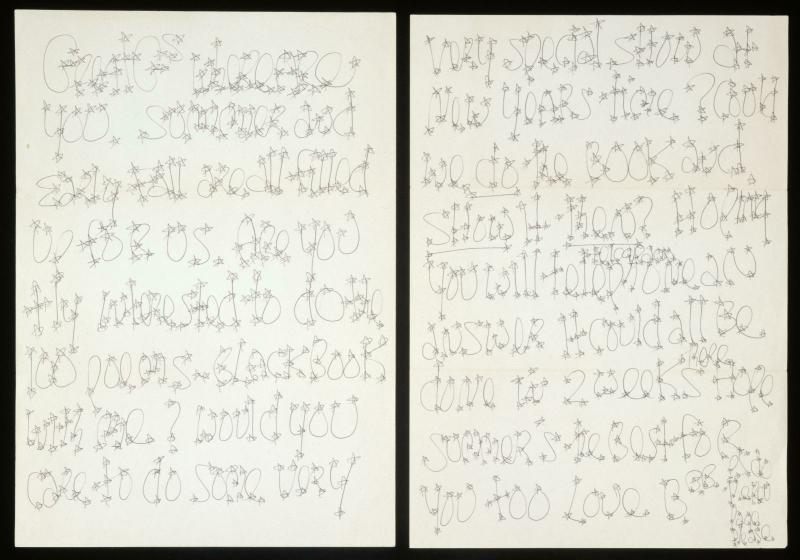 you summer and
early fall are all filled
up for us. Are you
still interested to do the
100 poems - Black Book
with me? Would you
care to do some very
very special show at
New Years time? Could
we do the Book and
show it then? I hope
you will Please
answer it could all be
done in 2 weeks time
Summer's the Best for
you too Love B